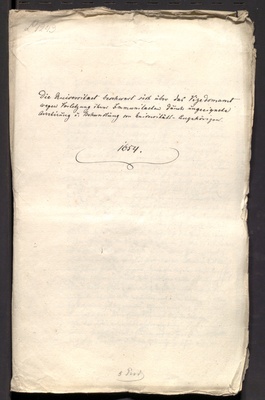 Die Universitaet beschwert sich über das Vizedomamt
wegen Verletzung ihrer Immunitaeten durch ungeeignete
Behandlung von Universitäts-Angehörigen
1654.